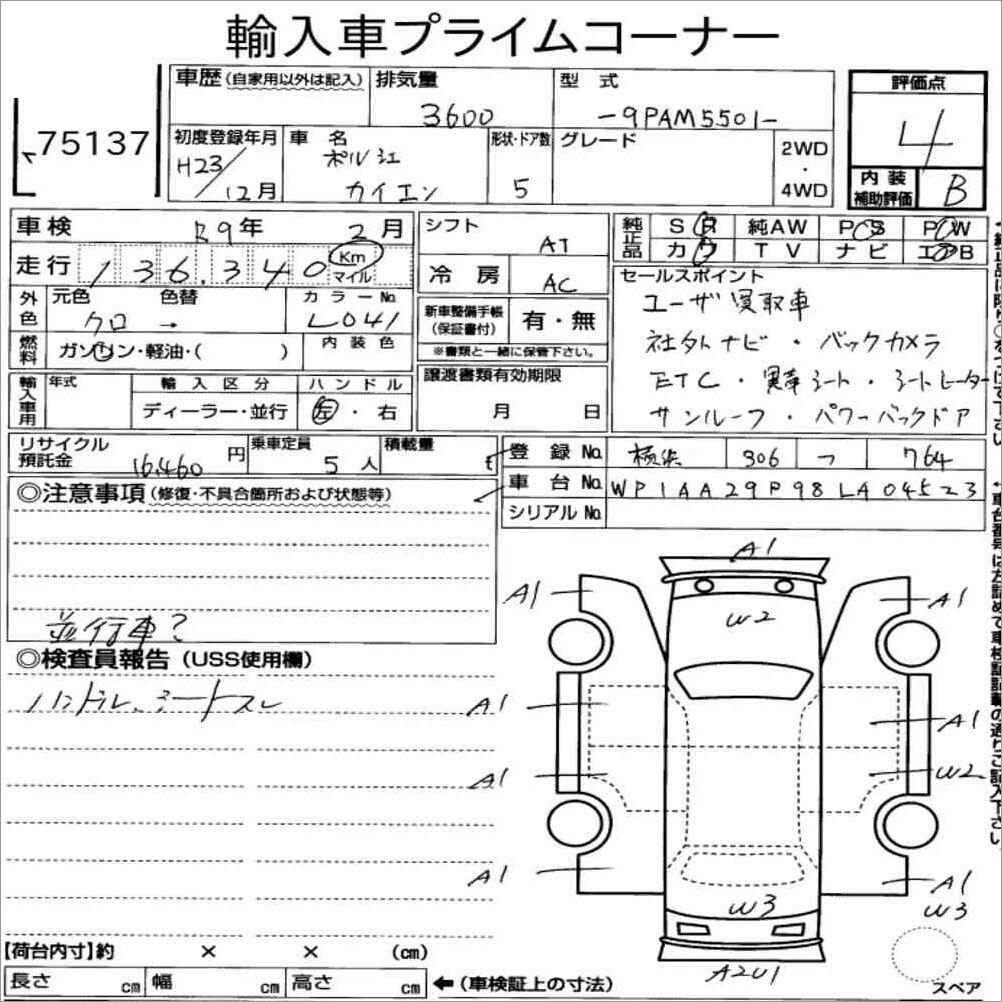 輸入車プライムコーナー
75137
車歴(自家用以外は記入) 排気量 3600 型式 -9PAM5501-
評価点 4
初度登録年月 H23/12月 車名 ポルシェ カイエン 形状・ドア数 5 グレード 2WD・4WD
内装補助評価 B
車検 R9年 2月
走行 136,340 Km マイル
外色 元色 クロ 色替 → カラーNo. L041
燃料 ガソリン・軽油・( ) 内装色
輸入車用 年式 輸入区分 ディーラー・並行 ハンドル 左・右
リサイクル預託金 16,460円 乗車定員 5人 積載量 t
シフト AT
冷房 AC
新車整備手帳(保証書付) 有・無
※書類と一緒に保管下さい。
譲渡書類有効期限
月 日
純正品 SR 純AW PS PW
カワ TV ナビ エアB
セールスポイント
ユーザ買取車
社外ナビ・バックカメラ
ETC・黒革シート・シートヒーター
サンルーフ・パワーバックドア
登録No. 横浜 306 つ 764
車台No. WP1AA29P98LA04523
シリアルNo.
◎注意事項(修復・不具合箇所および状態等)
並行車?
◎検査員報告(USS使用欄)
ハンドル、シートスレ
A1
A1
A1
W2
A1
A1
A1
W2
A1
A1
W3
W3
A2U1
スペア
【荷台内寸】約 × × (cm)
長さ cm 幅 cm 高さ cm ←(車検証上の寸法)